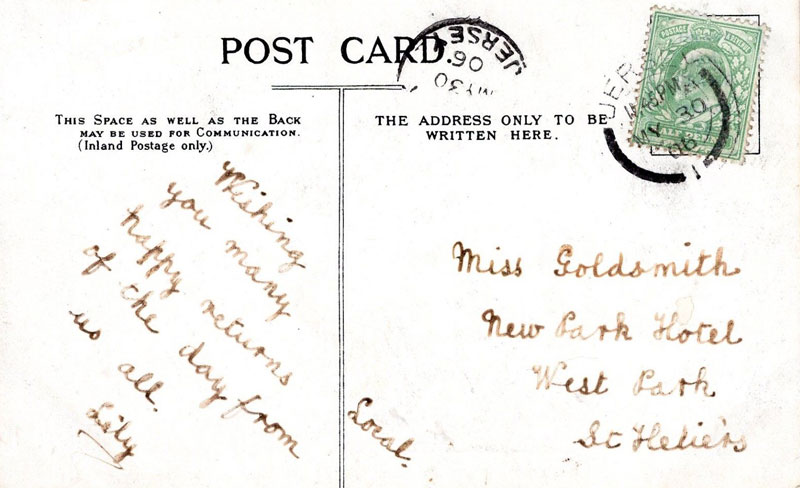 POST CARD.
JERSEY
MY 30
06
THIS SPACE AS WELL AS THE BACK
MAY BE USED FOR COMMUNICATION.
(Inland Postage only.)
THE ADDRESS ONLY TO BE
WRITTEN HERE.
POSTAGE
MY 30
06
Wishing
you many
happy returns
of the day from
us all.
Lily
Local.
Miss Goldsmith
New Park Hotel
West Park
St Heliers